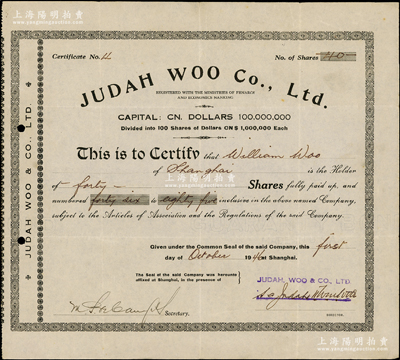 上海陽明拍賣
www.ymauction.com
Certificate No. 4
No. of Shares -40-
JUDAH WOO Co., Ltd.
REGISTERED WITH THE MINISTRIES OF FINANCE
AND ECONOMICS NANKING
CAPITAL: CN. DOLLARS 100,000,000
Divided into 100 Shares of Dollars CN$ 1,000,000 Each
This is to Certify that William Woo
of Shanghai is the Holder
of forty- Shares fully paid up, and
numbered forty six to eighty five inclusive in the above named Company,
subject to the Articles of Association and the Regulations of the said Company.
Given under the Common Seal of the said Company, this first
day of October 1946 at Shanghai.
The Seal of the said Company was hereunto
affixed at Shanghai, in the presence of
JUDAH, WOO & CO., LTD.
Secretary.
DIRECTOR.
JUDAH WOO & CO., LTD.
上海陽明拍賣
www.ymauction.com